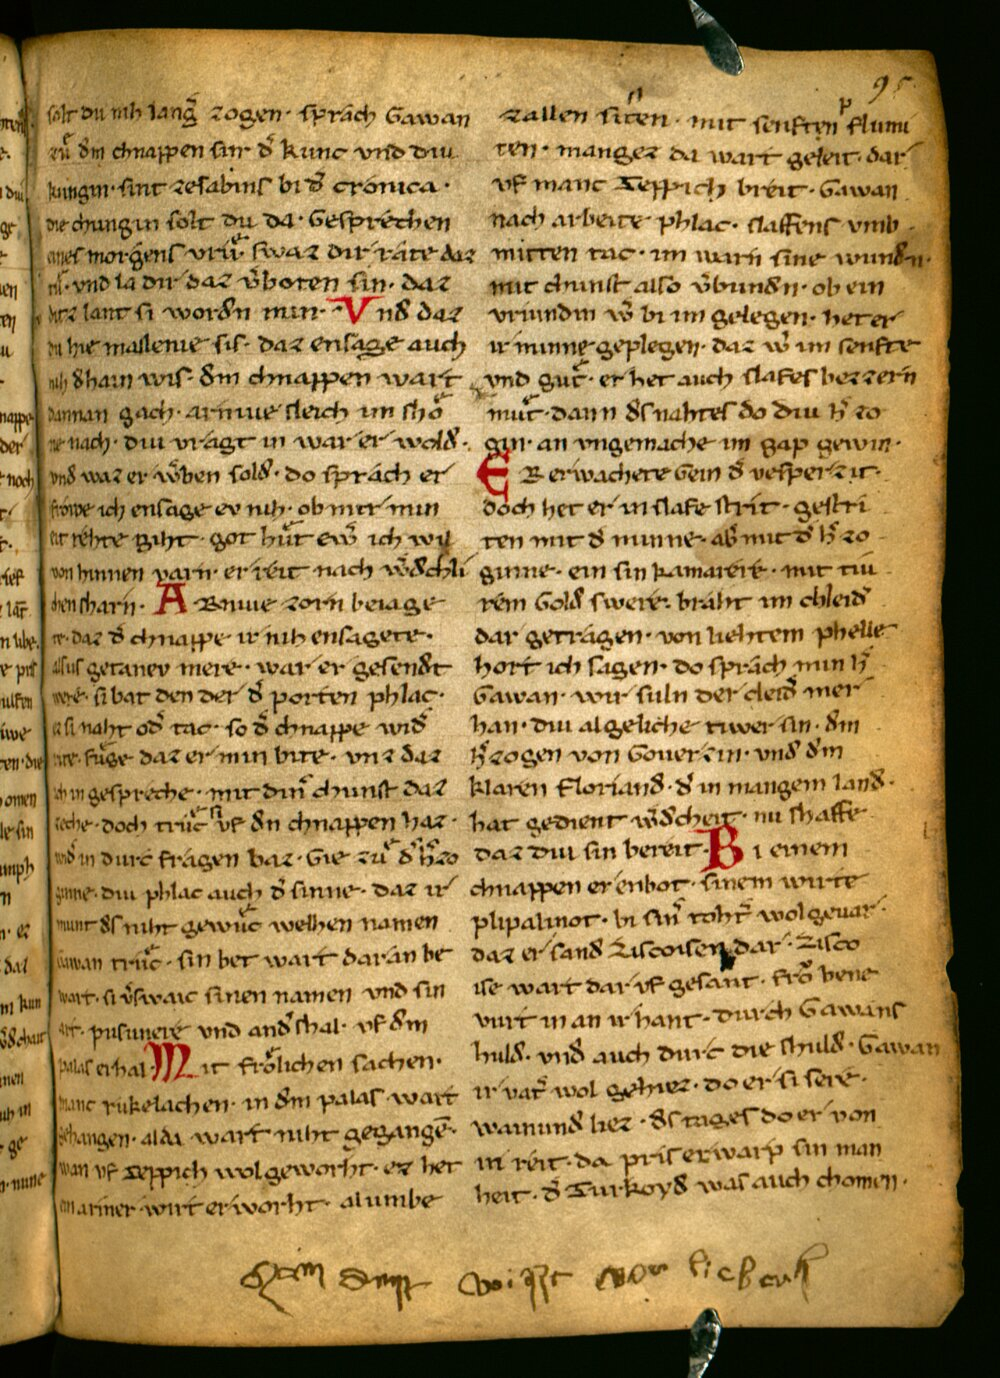 95
solt du nih lang̅ zogen · sprach Gawan
zuͦ dͤm chnappen sin · dͤ kunc vnd diu
kungin · sint zesabins bi dͤ cronica ·
die chungin solt du da · Gesprechen
eines morgens vruͤ · swaz dir rate daz
tuͦ · vnd la dir daz vͤboten sin · daz
ditz lant si wordͤn min · Vndͤ daz
du hie massenie sis · daz ensage auch
nih dͤhain wis · dͤm chnappen wart
dannan gach · arniue sleich im shoͦ
ne nach · diu vragt in war er woldͤ ·
vnd waz er wͤben soldͤ · do sprach er
frowe ich ensage ev nih · ob mir min
eit rehte giht · got huͤt ewͤ ich wil
von hinnen varn · er reit nach wͤdͤchli
chen sharn · Arniue zorn beiage
te · daz dͤ chnappe ir nih ensagete ·
alsus getanev mere · war er gesendͤt
were · si bat den der dͤ porten phlac ·
ez si naht odͤ tac · so dͤ chnappe widͤ
rite · fuͤge daz er min bite · vnz daz
ich in gespreche · mit dinͤ chunst daz
zeche · doch truͦc si vf dͤn chnappen haz ·
widͤ in durc fragen baz · Gie zuͦ dͤ hͤzo
ginne · diu phlac auch dͤ sinne · daz ir
munt dͤs niht gewuͦc welhen namen
Gawan truͦc · sin bet wart daran be
wart · si vͤswaic sinen namen vnd sin
art · pusunere vnd andͤ shal · vf dͤm
palas erhal · Mit froͤlichen sachen ·
manc rukelachen · in dͤm palas wart
gehangen · alda wart niht gegange̅ ·
wan vf Teppich wol geworht · ez het
ein armer wirt er worht · alumbe
zallen siten · mit senften pflumi
ten · mangez da wart geleit · dar
vf manc Teppich breit · Gawan
nach arbeite phlac · slaffens vmb
mitten tac · im warn sine wundͤn ·
mit chunst also vͤbundͤn · ob ein
vriundin wͤ bi im gelegen · het er
ir minne geplegen · daz wͤ im senfte
vnd guͦt · er het auch slafes bezzern
muͦt · dann dͤs nahtes do diu hͤzo
gin · an vngemache im gap gewin ·
Er erwachete Gein dͤ vesper zit ·
doch het er in slafe strit · gestri
ten mit dͤ minne · abͤ mit dͤ hͤzo
ginne · ein sin kamarere · mit tiu
rem Goldͤ swere · braht im chleidͤ
dar getragen · von liehtem phelle
hort ich sagen · do sprach min hͤ
Gawan · wir suln der cleidͤ mer
han · diu algeliche tiwer sin · dͤm
hͤzogen von Gouerzin · vndͤ dͤm
klaren Floriandͤ · dͤ in mangem landͤ ·
hat gedient wͤdͤcheit · nu shaffe
daz diu sin bereit · Bi einem
chnappen er enbot · sinem wirte
plipalinot · bi sinͤ tohtͤ wol geuar ·
daz er sandͤ Liscoisen dar · Lisco
ise wart dar vf gesant · froͮ bene
vuͦrt in an ir hant · durch Gawans
huldͤ · vndͤ auch durc die shuldͤ · Gawan
ir vatͤ wol gehiez · do er si sere ·
wainundͤ liez · dͤs tages do er von
in reit · da pris erwarp sin man
heit · dͤ Turkoydͤ was auch chomen ·